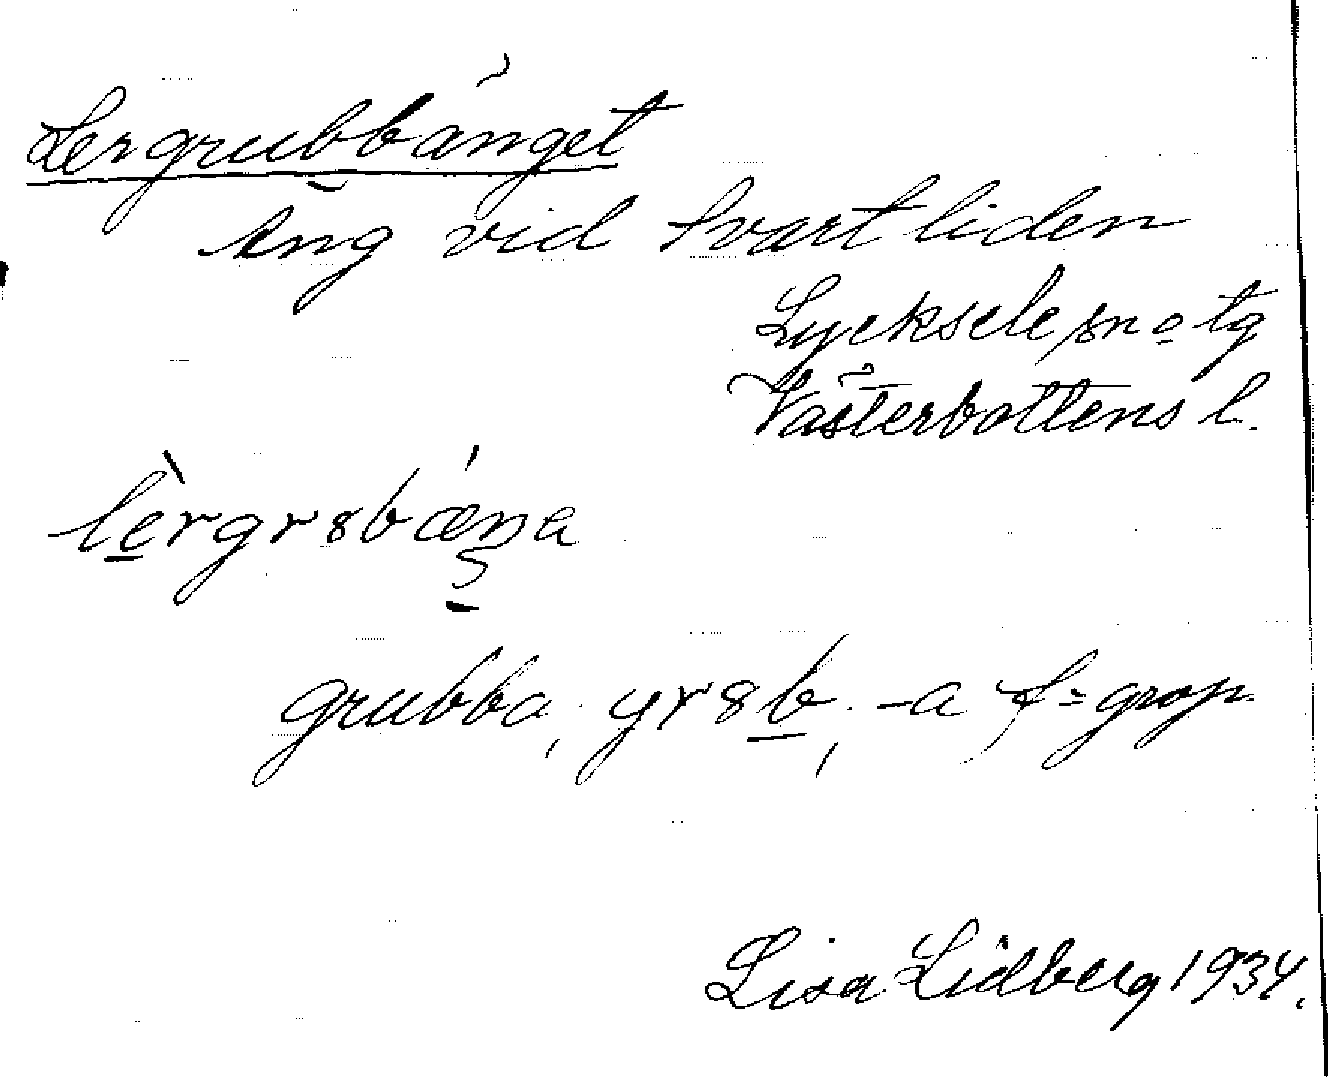 Lergrubbänget
Äng vid Svartliden
Lycksele sn o tg
Västerbottens l.
lèrgr8bæŋa
grubba, gr8b, -a f = grop
Lisa Lidberg 1934.